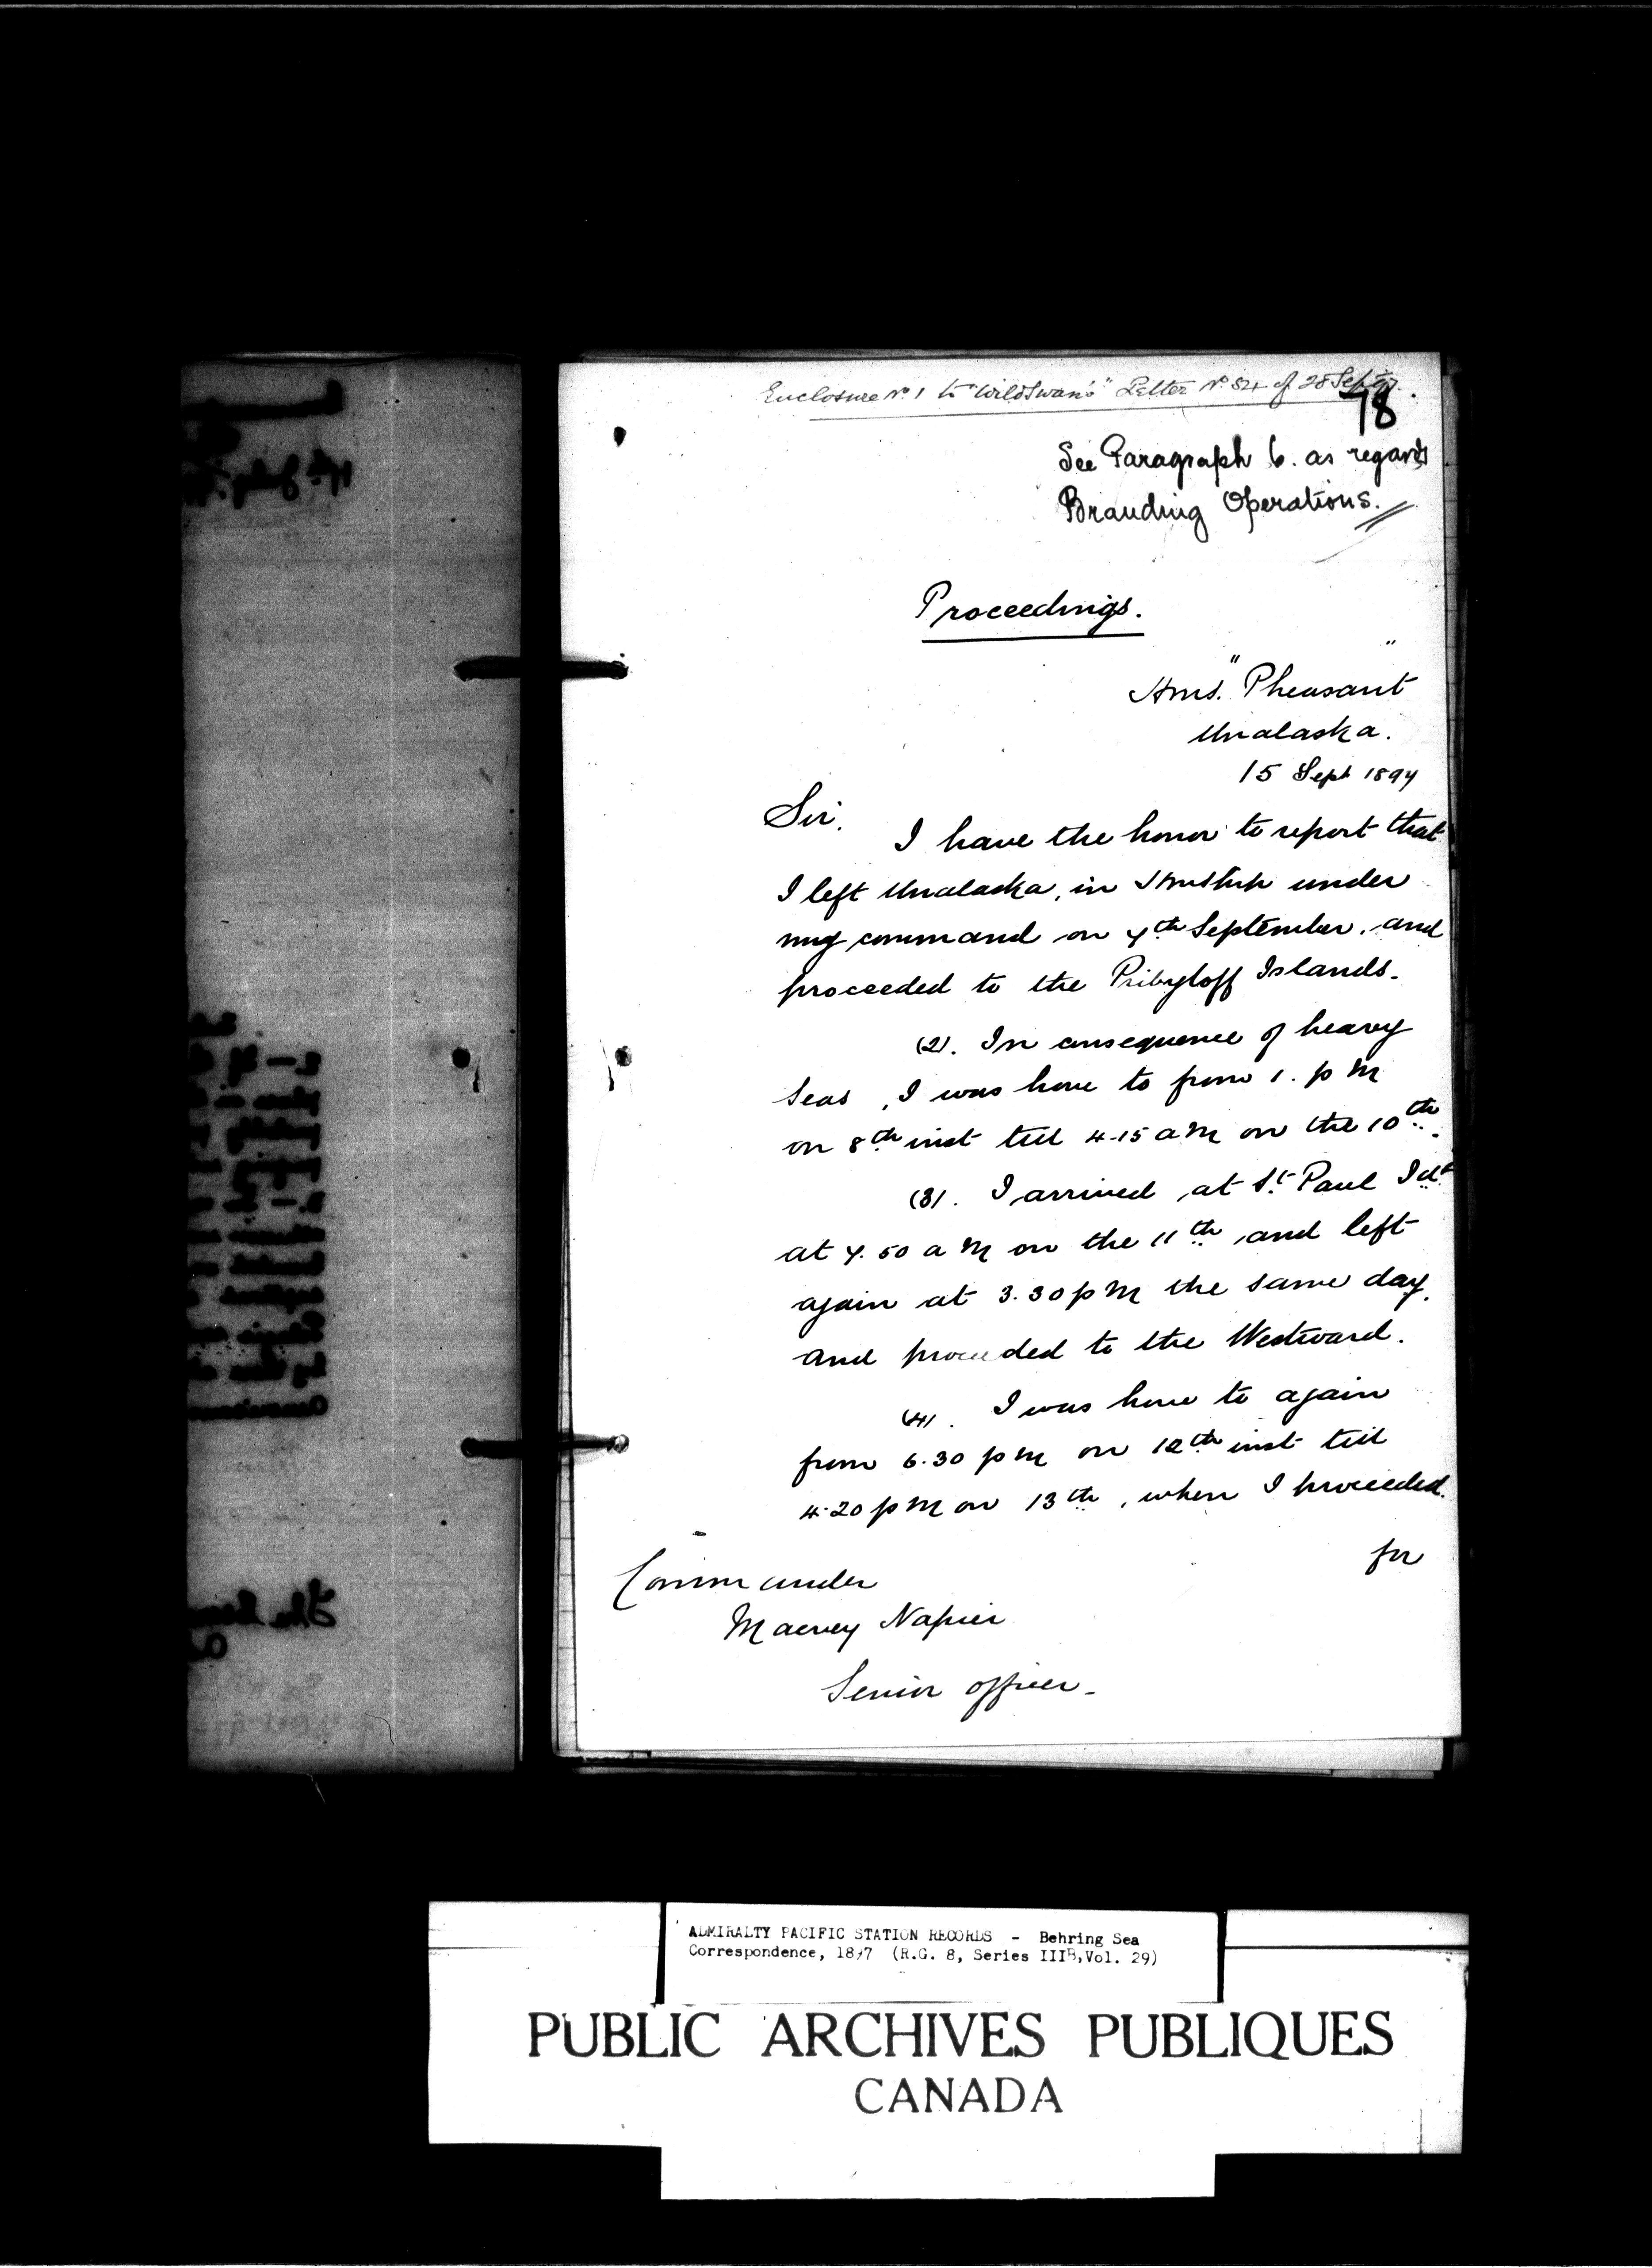 Enclosure No. 1 to "Wild Swan's" Letter No. 84 of 28 Sept 97.
78
See Paragraph 6. as regards
Branding Operations.
Proceedings.
H.M.S. "Pheasant"
Unalaska.
15 Sept 1897
Sir.
I have the honor to report that
I left Unalaska, in HM Ship under
my command on 7th September. and
proceeded to the Pribyloff Islands.
(2). In consequence of heavy
Seas, I was hove to from 1. p M
on 8th inst till 4.15 a M on the 10th.
(3). I arrived at St Paul Id
at 7.50 a M on the 11th and left
again at 3.30 p M the same day.
and proceeded to the Westward.
(4). I was hove to again
from 6.30 p m on 12th inst till
4.20 p M on 13th, when I proceeded.
for
Commander
Macvey Napier
Senior officer -
ADMIRALTY PACIFIC STATION RECORDS - Behring Sea
Correspondence, 1897 (R.G. 8, Series IIIB, Vol. 29)
PUBLIC ARCHIVES PUBLIQUES
CANADA